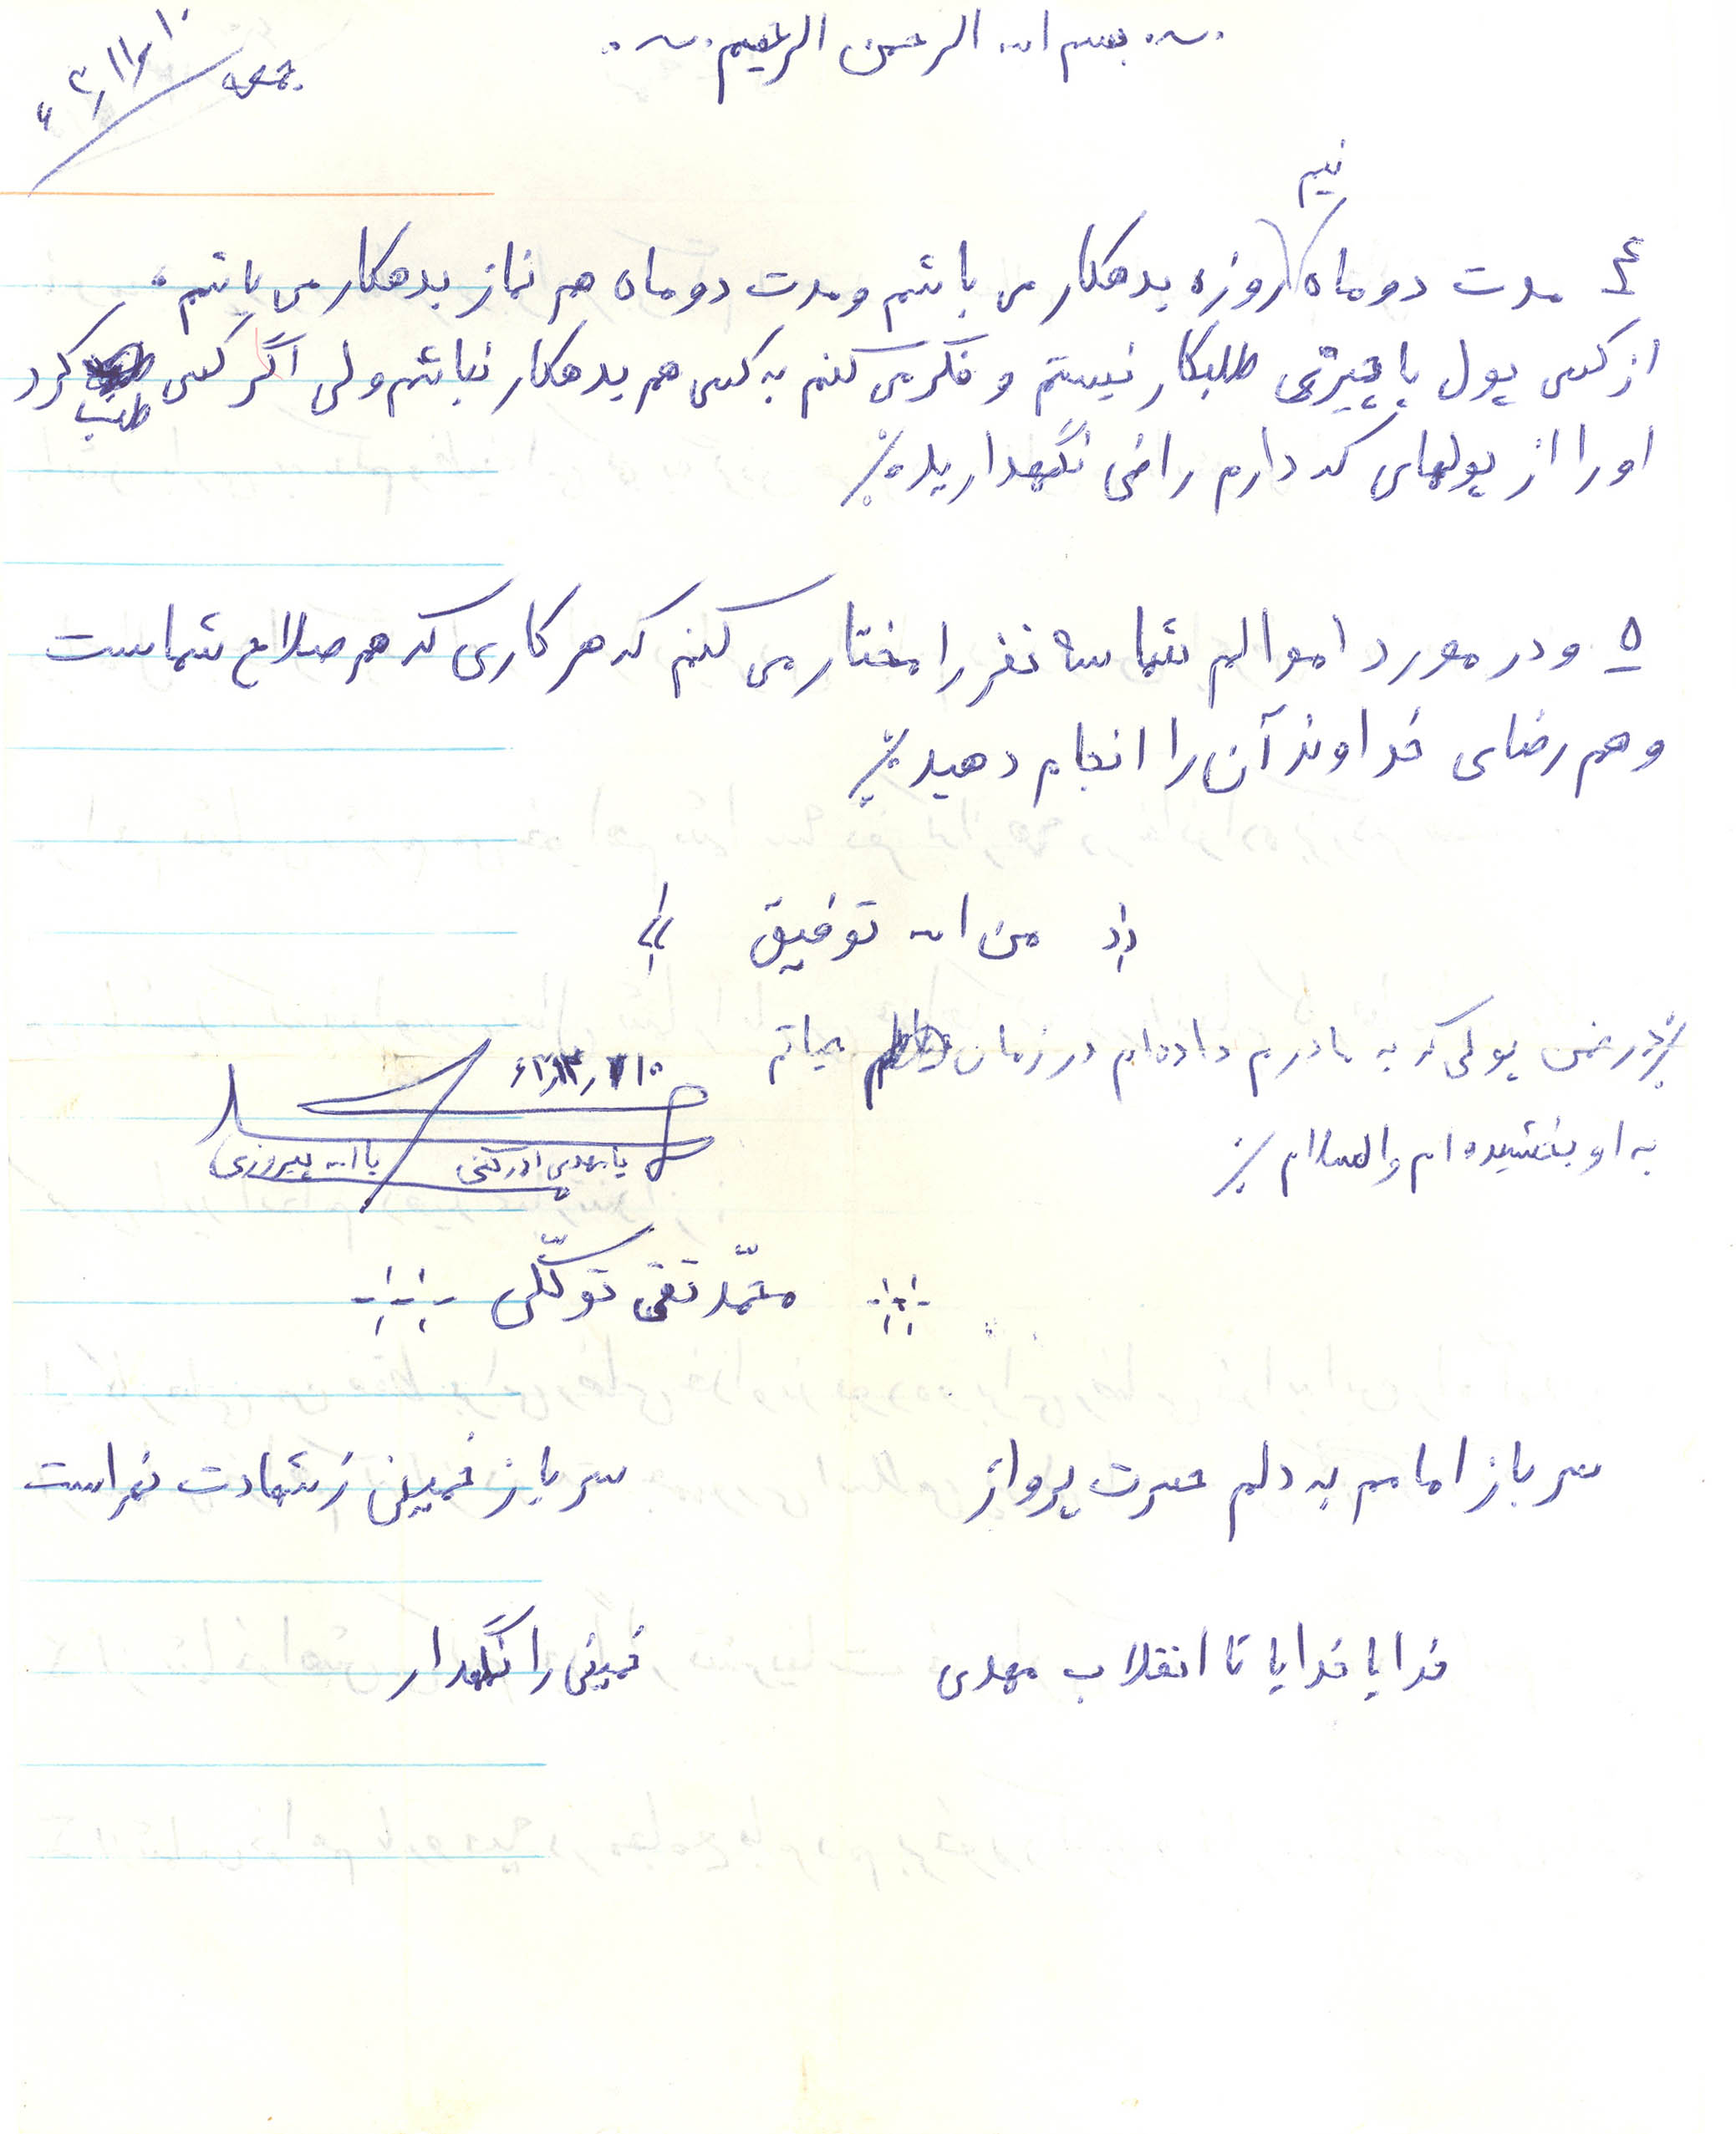 بسم الله الرحمن الرحیم
جمعه
نیم
۴ مدت دو ماه روزه بدهکار می باشم و مدت دو ماه هم نماز بدهکار می باشم.
از کسی پول یا چیزی طلبکار نیستم و فکر می کنم به کسی هم بدهکار نباشم ولی اگر کسی طلب کرد
او را از پولهای که دارم راضی نگهدارید.
۵ و در مورد اموالم شما سه نفر را مختار می کنم که هر کاری که هم صلاح شماست
و هم رضای خداوند آن را انجام دهید
من الله توفیق
در ضمن پولی که به مادرم داده‌ام در زمان حیاتم
به او بخشیده ام والسلام
یا مهدی ادرکنی یا الله پیروزی
محمّد تقی توکّلی
سرباز امامم به دلم حسرت پرواز سرباز خمینی ز شهادت نهراست
خدایا خدایا تا انقلاب مهدی خمینی را نگهدار